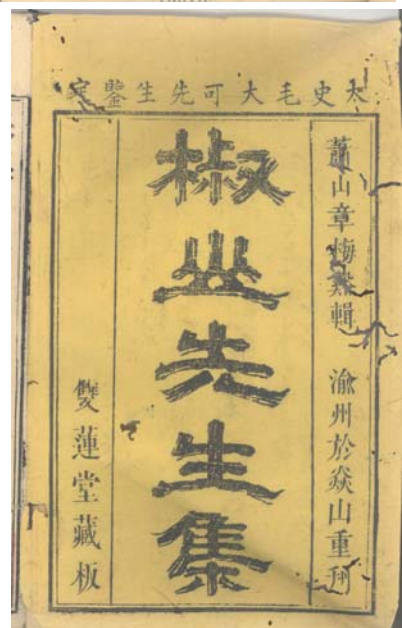 太史毛大可先生鑒定
蕭山章梅谿輯 渝州於焱山重刊
椒山先生集
雙蓮堂藏板